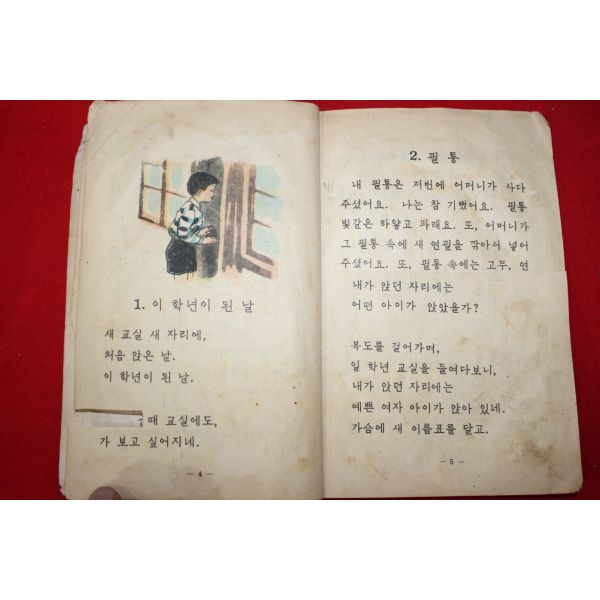 1. 이 학년이 된 날
새 교실 새 자리에,
처음 앉은 날.
이 학년이 된 날.
때 교실에도,
가 보고 싶어지네.
— 4 —
2. 필 통
내 필통은 저번에 어머니가 사다
주셨어요. 나는 참 기뻤어요. 필통
빛깔은 하얗고 파래요. 또, 어머니가
그 필통 속에 새 연필을 깎아서 넣어
주셨어요. 또, 필통 속에는 고무, 연
내가 앉던 자리에는
어떤 아이가 앉았을가?
복도를 걸어가며,
일 학년 교실을 들여다보니,
내가 앉던 자리에는
예쁜 여자 아이가 앉아 있네.
가슴에 새 이름표를 달고.
— 5 —